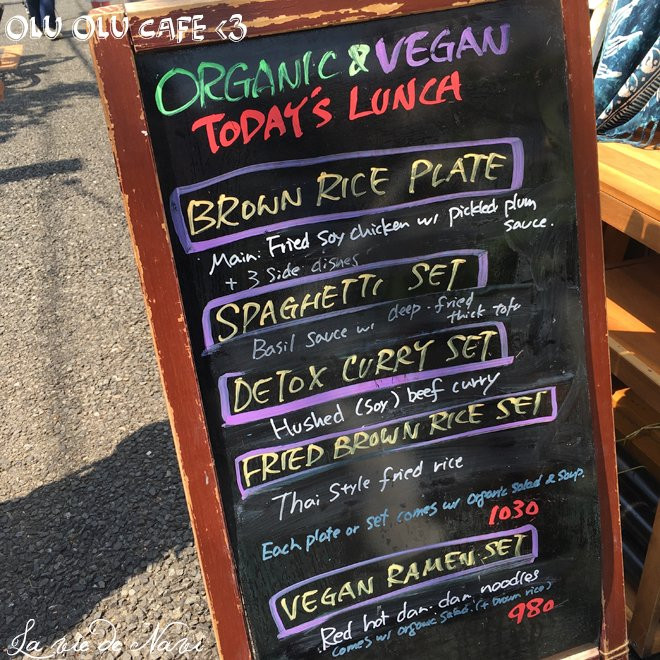 OLU OLU CAFE <3
ORGANIC & VEGAN
TODAY'S LUNCH
BROWN RICE PLATE
Main: Fried Soy chicken w/ pickled plum
sauce.
+ 3 side dishes
SPAGHETTI SET
Basil sauce w/ deep-fried
thick tofu
DETOX CURRY SET
Hushed (soy) beef curry
FRIED BROWN RICE SET
Thai style fried rice
Each plate or set comes w/ organic salad & soup.
1030
VEGAN RAMEN SET
Red hot dan dan noodles
comes w/ organic salad. (+ brown rice)
980
La vie de Navi